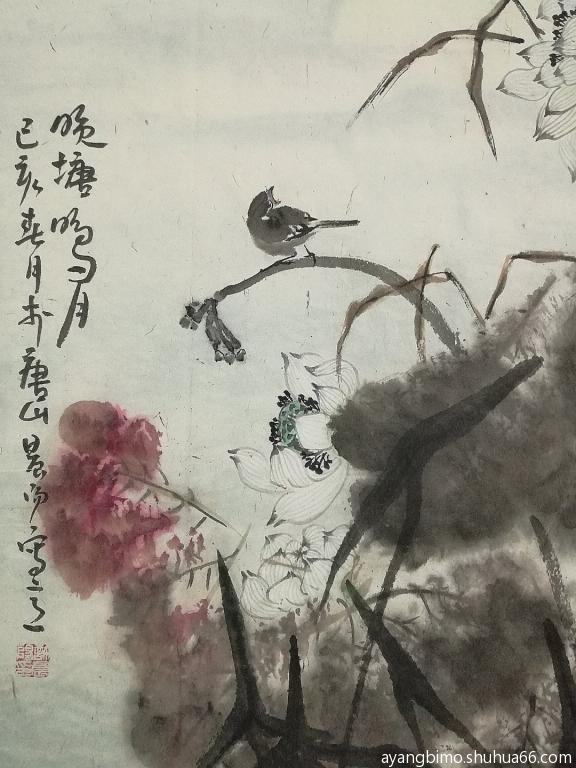 晚塘鸣月
己亥春月于唐山晨阳写
ayangbimo.shuhua66.com